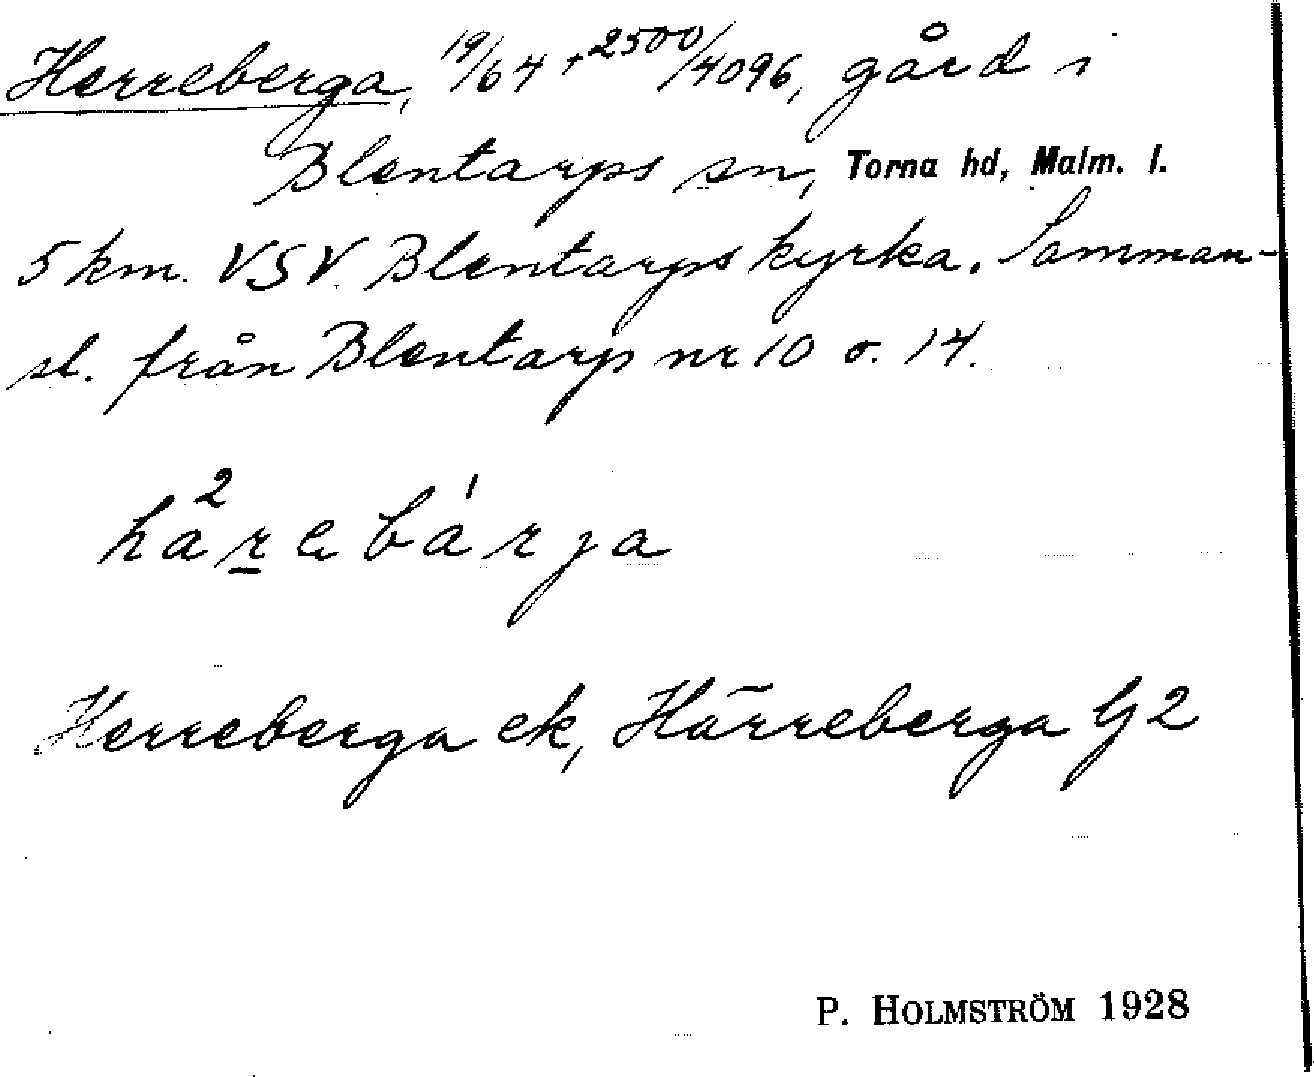 Herreberga, 19/64 + 2500/4096, gård i
Blentarps sn, Torna hd, Malm. l.
5 km. VSV. Blentarps kyrka. Samman-
sl. från Blentarp nr 10 o. 14.
hå²rebá'rja
Herreberga ek, Härreberga G2
P. HOLMSTRÖM 1928